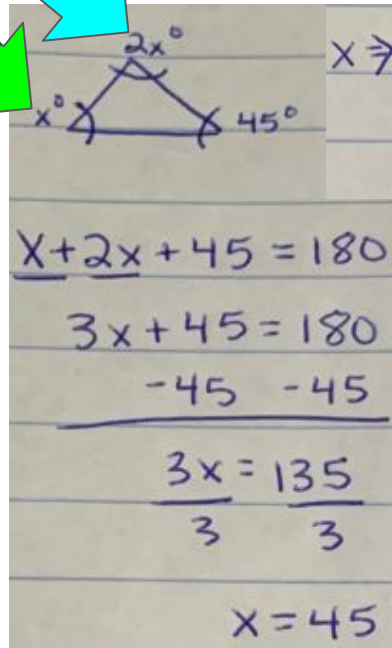 2x°
x ⇒
x° 45°
x + 2x + 45 = 180
3x + 45 = 180
-45 -45
3x = 135
3 3
x = 45